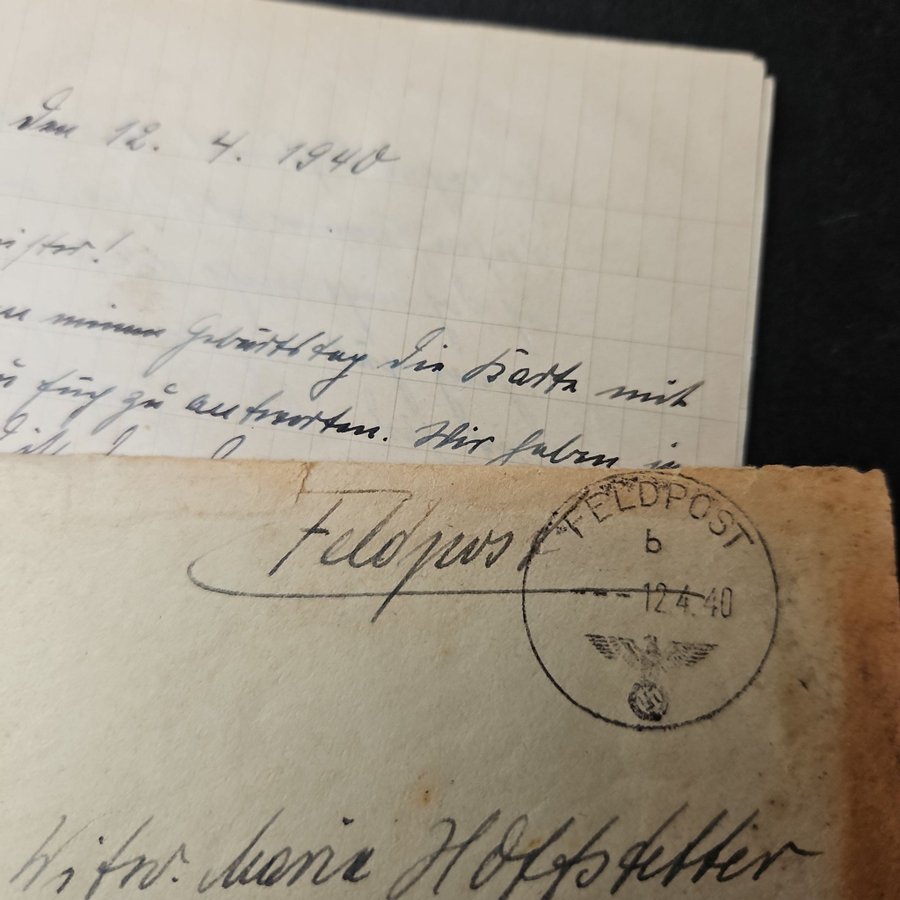 den 12. 4. 1940
meinen Geburtstag die Karte mit
Euch zu antworten. Wir haben
Feldpost
FELDPOST
b
--- 12.4.40
Witw. Maria Hoffstetter